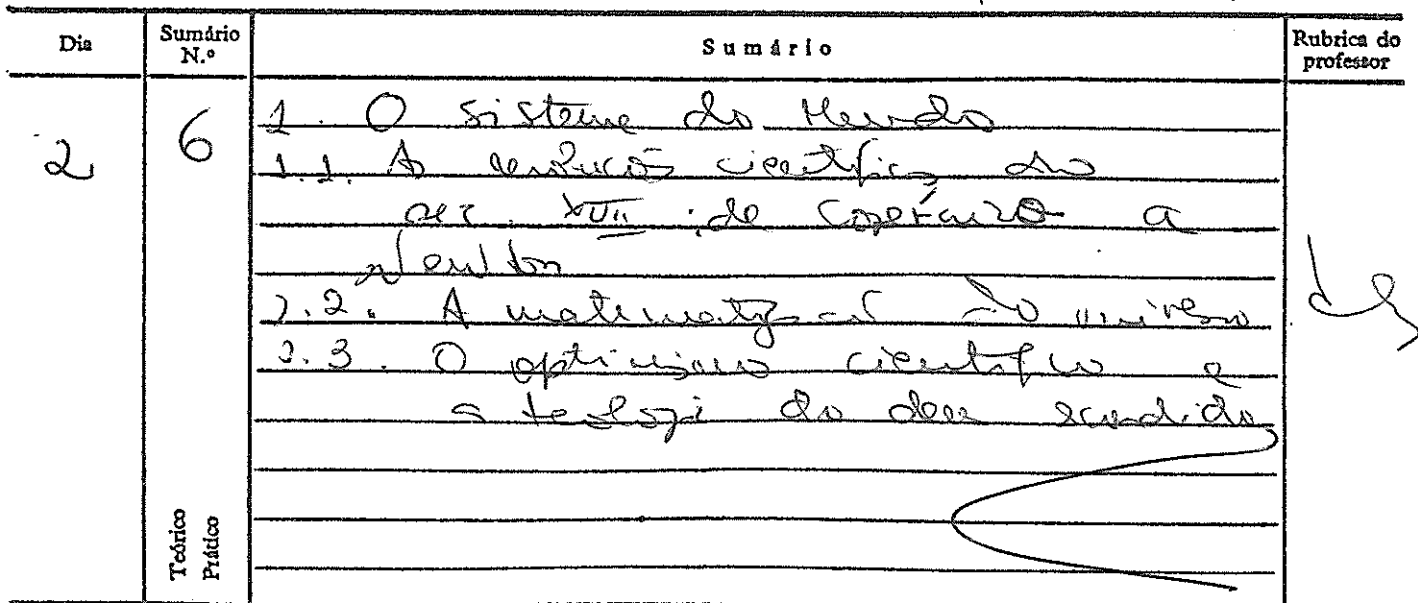 Dia
Sumário N.º
Sumário
Rubrica do professor
2
6
1. O sistema do Mundo
1.1. A revolução científica do
sec. XVII: de Copérnico a
Newton
1.2. A matematização do universo
1.3. O optimismo científico e
a teologia do deus escondido
Teórico
Prático